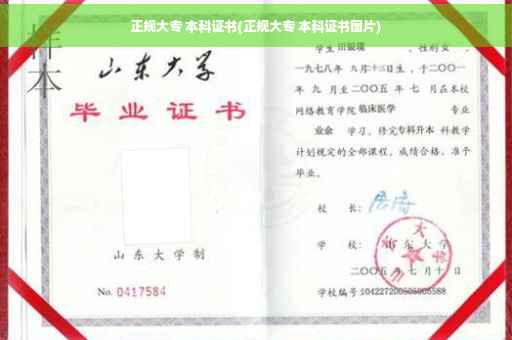 正规大专 本科证书(正规大专 本科证书图片)
样本
山东大学
毕业证书
山东大学制
No. 0417584
学生 田银環 ，性别 女 ，
一九七八年 九月十二日生，于二〇〇一
年 九 月至二〇〇五 年 七 月在本校
网络教育学院 临床医学 专业
业余 学习，修完 专科升本 科教学
计划规定的全部课程，成绩合格，准予
毕业。
校 长：
学 校： 山东大学
二〇〇五年 七 月 十 日
学校编号:104227200505005588
山东大学